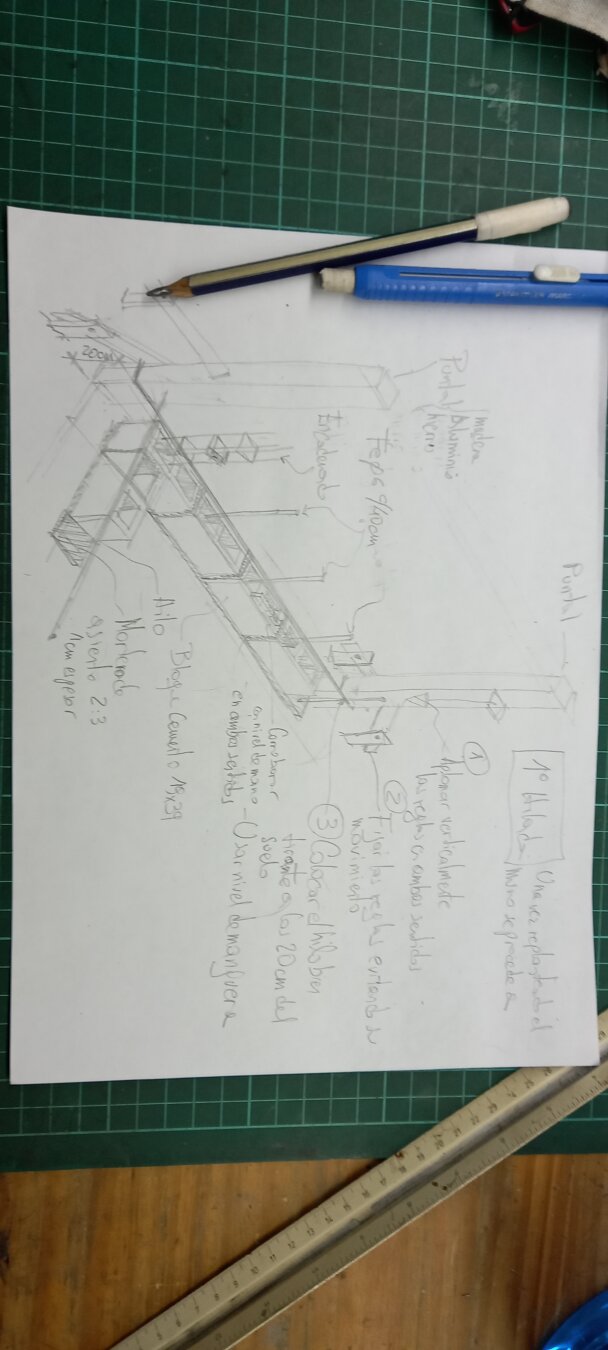 1º Hilada
Una vez replanteado el
Muro se procede a
① Aplomar verticalmente
las reglas en ambos sentidos.
② Fijar las reglas evitando su
movimiento
③ Colocar el hilo bien
tirante a los 20cm del
suelo
- Usar nivel de manguera
Corroborar
con nivel de mano
en ambos sentidos
Puntal
Puntal
madera
Aluminio
hierro
40cm
Encadenado
20cm
Bloque Cemento 19x39
Hilo
Morterado
asiento 2:3
1cm espesor